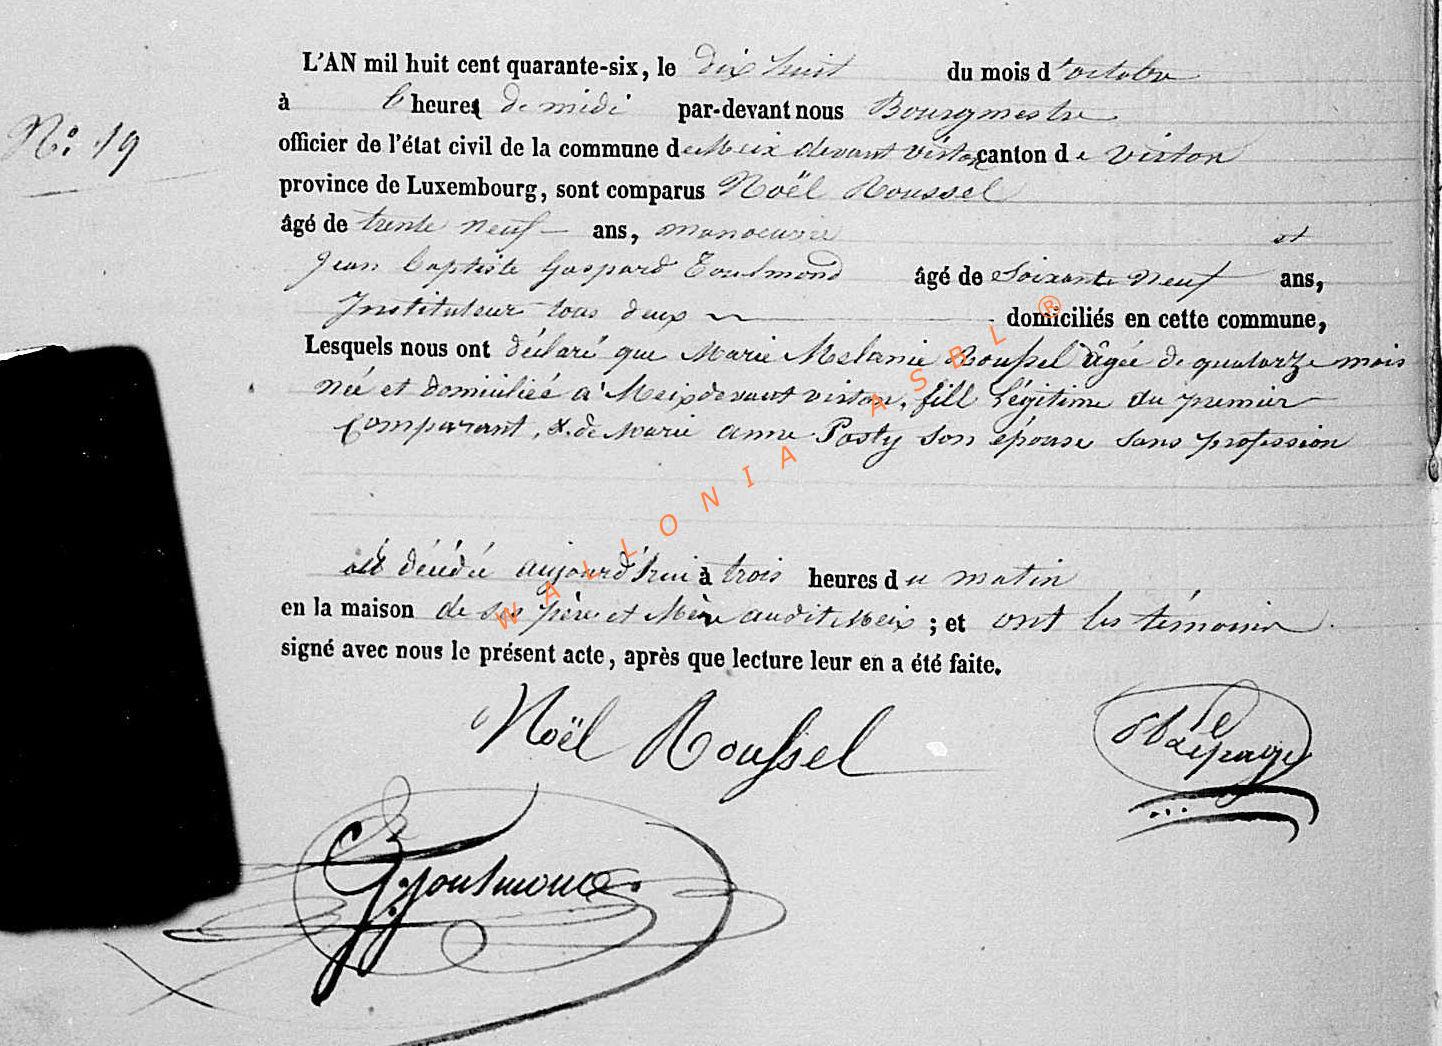 N.° 19
L'AN mil huit cent quarante-six, le dix huit du mois d'octobre
à heures de midi par-devant nous Bourgmestre
officier de l'état civil de la commune de Meix devant virton canton de virton
province de Luxembourg, sont comparus Noël Roussel
âgé de trente neuf ans, manoeuvre et
Jean Baptiste Gaspard Toulmond âgé de Soixante neuf ans,
Instituteur tous deux domiciliés en cette commune,
Lesquels nous ont déclaré que Marie Melanie Roussel âgée de quatorze mois
née et domiciliée à Meix devant virton, fille légitime du premier
Comparant, & de Marie anne Posty son épouse sans profession
est décédée aujourd'hui à trois heures du matin
en la maison de ses père et Mère audit Meix ; et ont les témoins
signé avec nous le présent acte, après que lecture leur en a été faite.
Noël Roussel
Lepage
G. Toulmond
WALLONIA ASBL ®